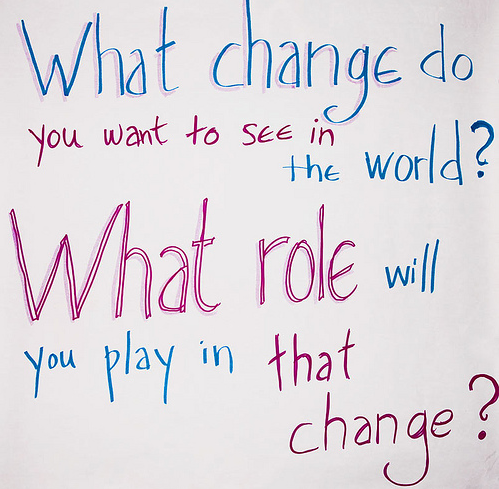 What change do
you want to see in
the world?
What role will
you play in that
change?